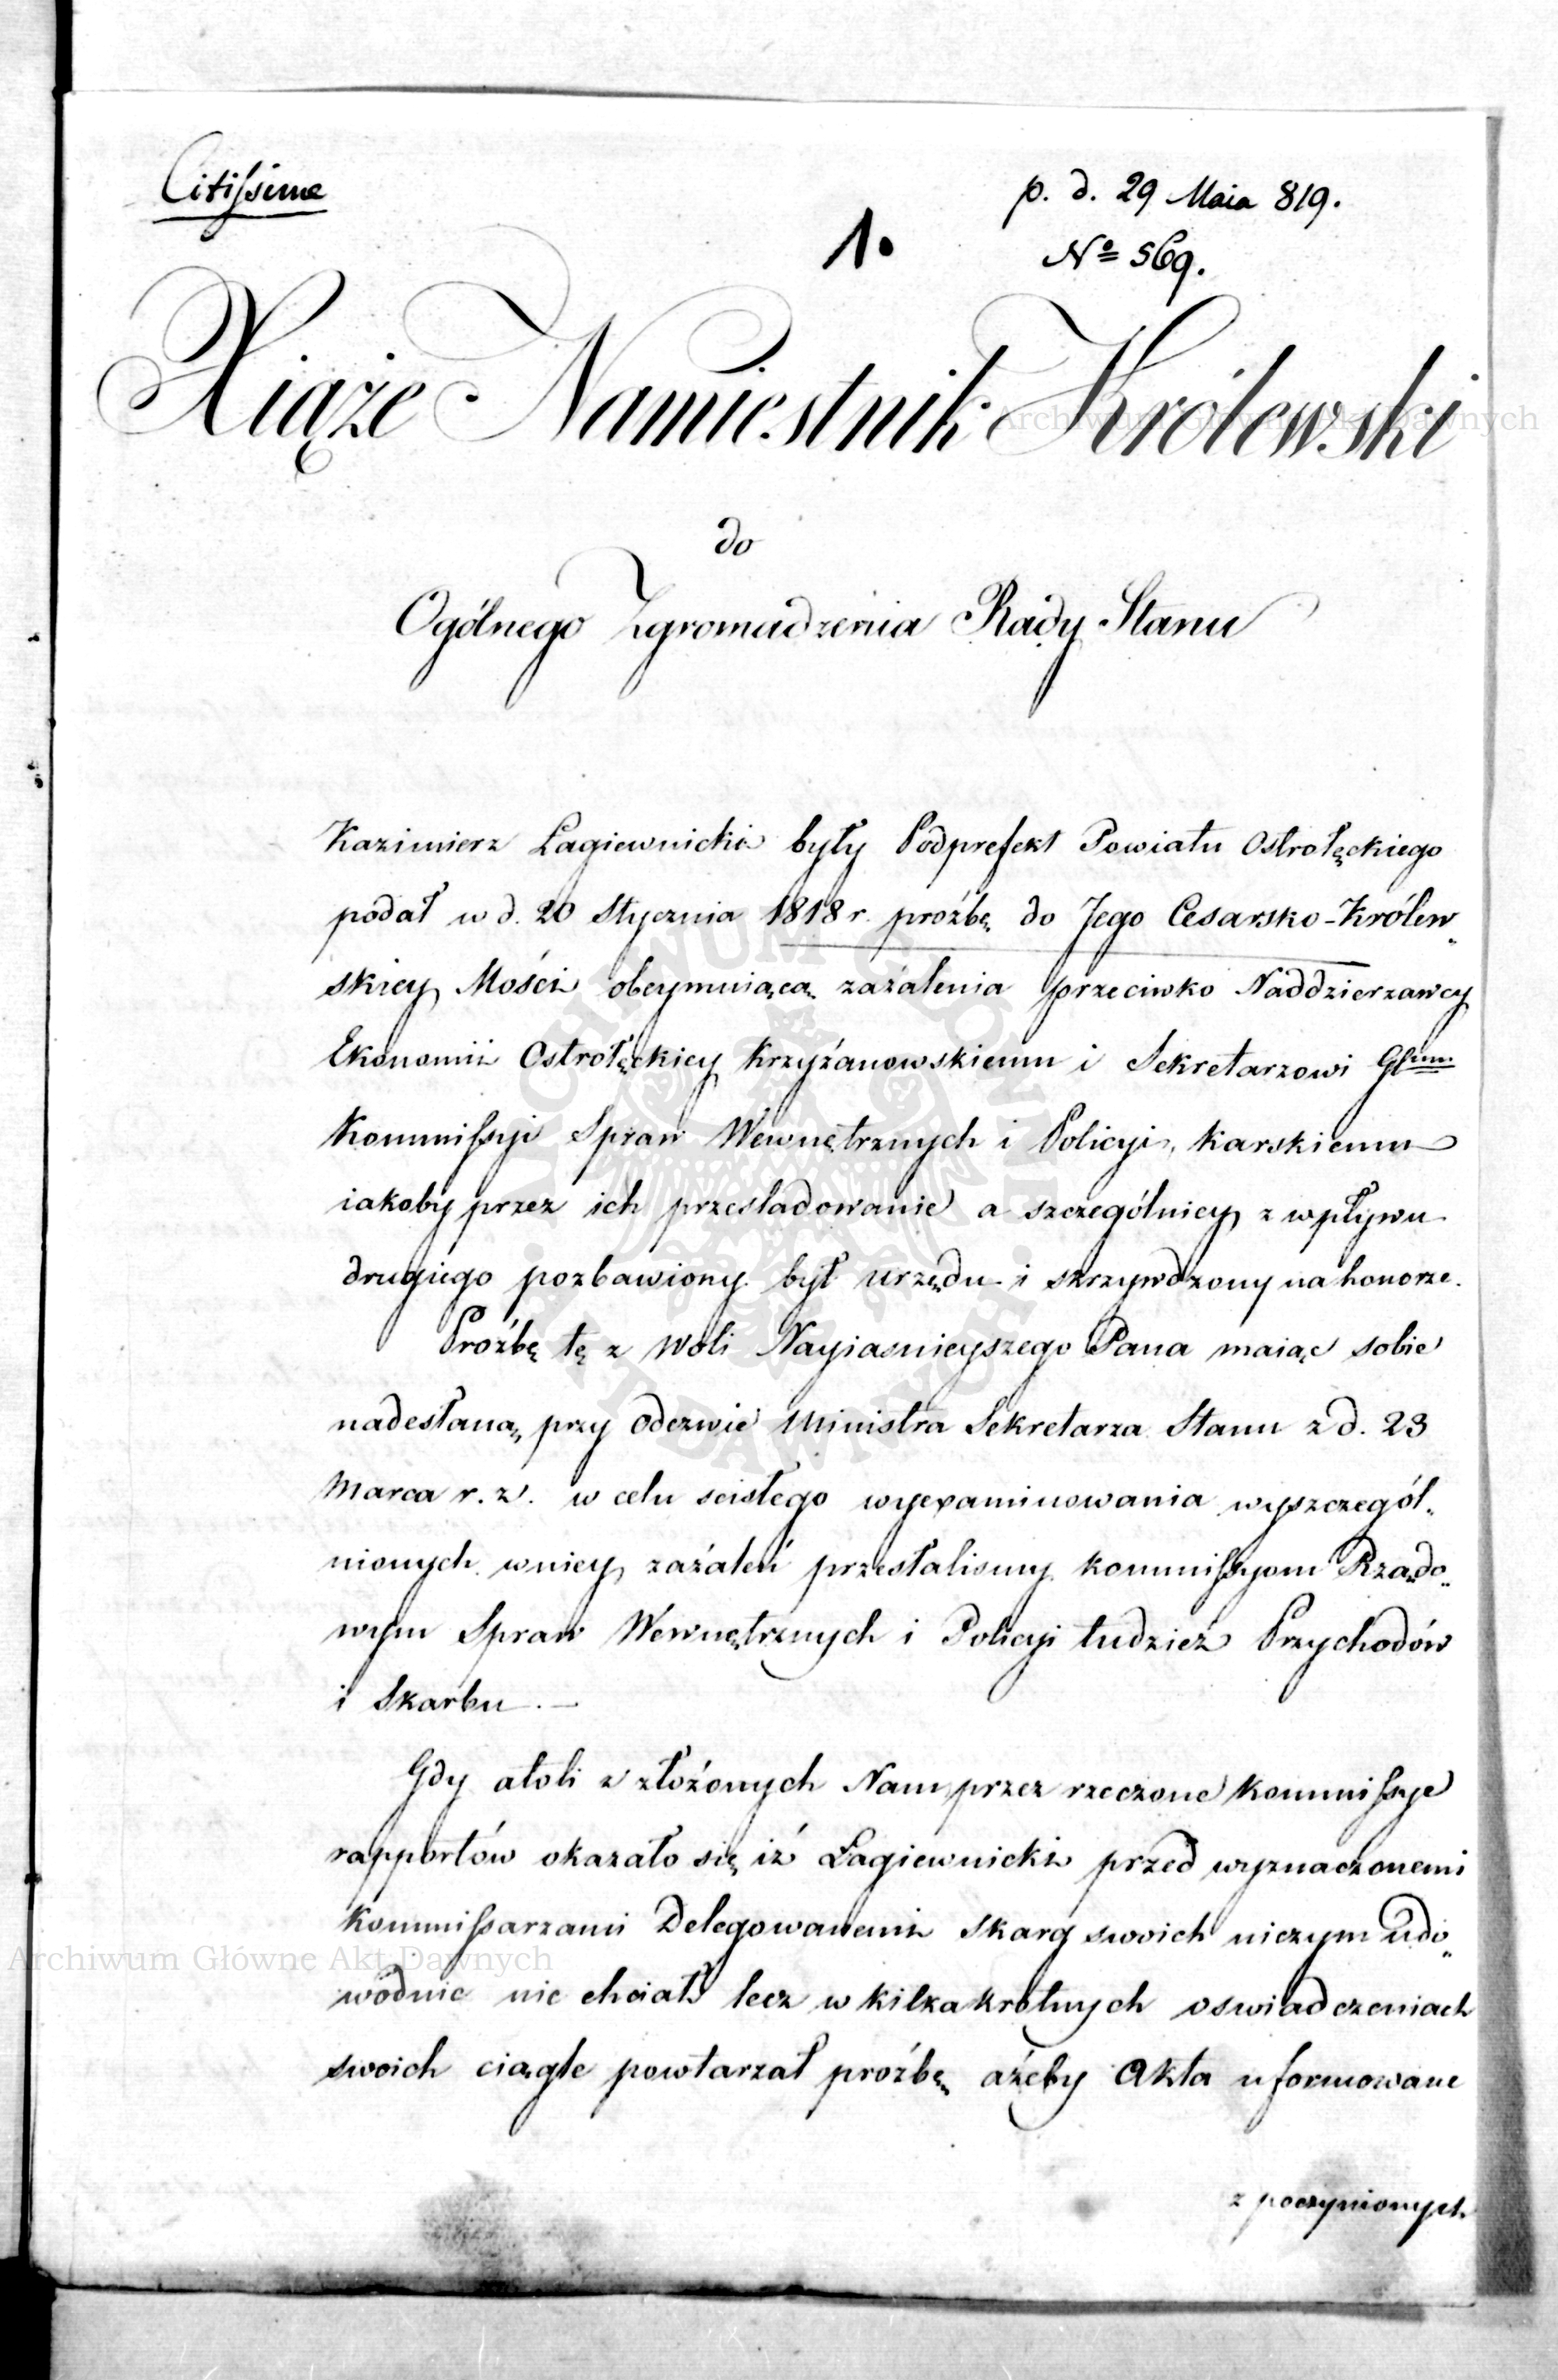 Citissime
p. d. 29 Maia 819.
1.
Nº 569.
Xiąże Namiestnik Królewski
do
Ogólnego Zgromadzenia Rady Stanu
Kazimierz Łagiewnicki były Podprefekt Powiatu Ostrołęckiego
podał w d. 20 Stycznia 1818 r. proźbę do Jego Cesarsko-Królew„
skiey Mości obeymuiącą zażalenia przeciwko Naddzierżawcy
Ekonomii Ostrołęckiey Krzyżanowskiemu i Sekretarzowi Glnmu
Kommissyi Spraw Wewnętrznych i Policyi, Karskiemu
iakoby przez ich prześladowanie a szczególniey z wpływu
drugiego pozbawiony był urzędu i skrzywdzony na honorze.
Proźbę tę z Woli Nayiaśnieyszego Pana maiąc sobie
nadesłaną, przy Odezwie Ministra Sekretarza Stanu z d. 23
Marca r. z. w celu scisłego wyexaminowania wyszczegól„
nionych w niey zażaleń przesłalismy Kommissyom Rządo„
wym Spraw Wewnętrznych i Policyi tudzież Przychodów
i Skarbu. —
Gdy atoli z złożonych Nam przez rzeczone Kommissye
rapportów okazało się iż Łagiewnicki przed wyznaczonemi
Kommissarzami Delegowanemi skarg swoich niczym udo„
wodnic nie chciał, lecz w kilkakrotnych oswiadczeniach
swoich ciągle powtarzał proźbę ażeby Akta uformowane
z poczynionych
Archiwum Główne Akt Dawnych
Archiwum Główne Akt Dawnych
ARCHIWUM GŁÓWNE AKT DAWNYCH